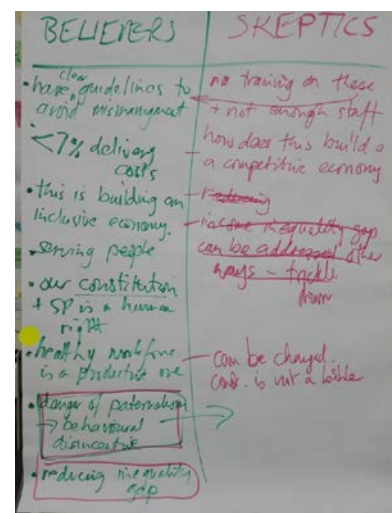 BELIEVERS
• have clear guidelines to
avoid mismanagment
<7% delivery
costs
• this is building an
inclusive economy.
• serving people
• our constitution
+ SP is a human
right
• healthy workforce
is a productive one
• danger of paternalism
→ behavioural
disincentive
• reducing inequality
gap
SKEPTICS
no training on these
+ not enough staff
how does this build a
a competitive economy
income inequality gap
can be addressed other
ways - trickle
down
can be changed.
const. is not a bible